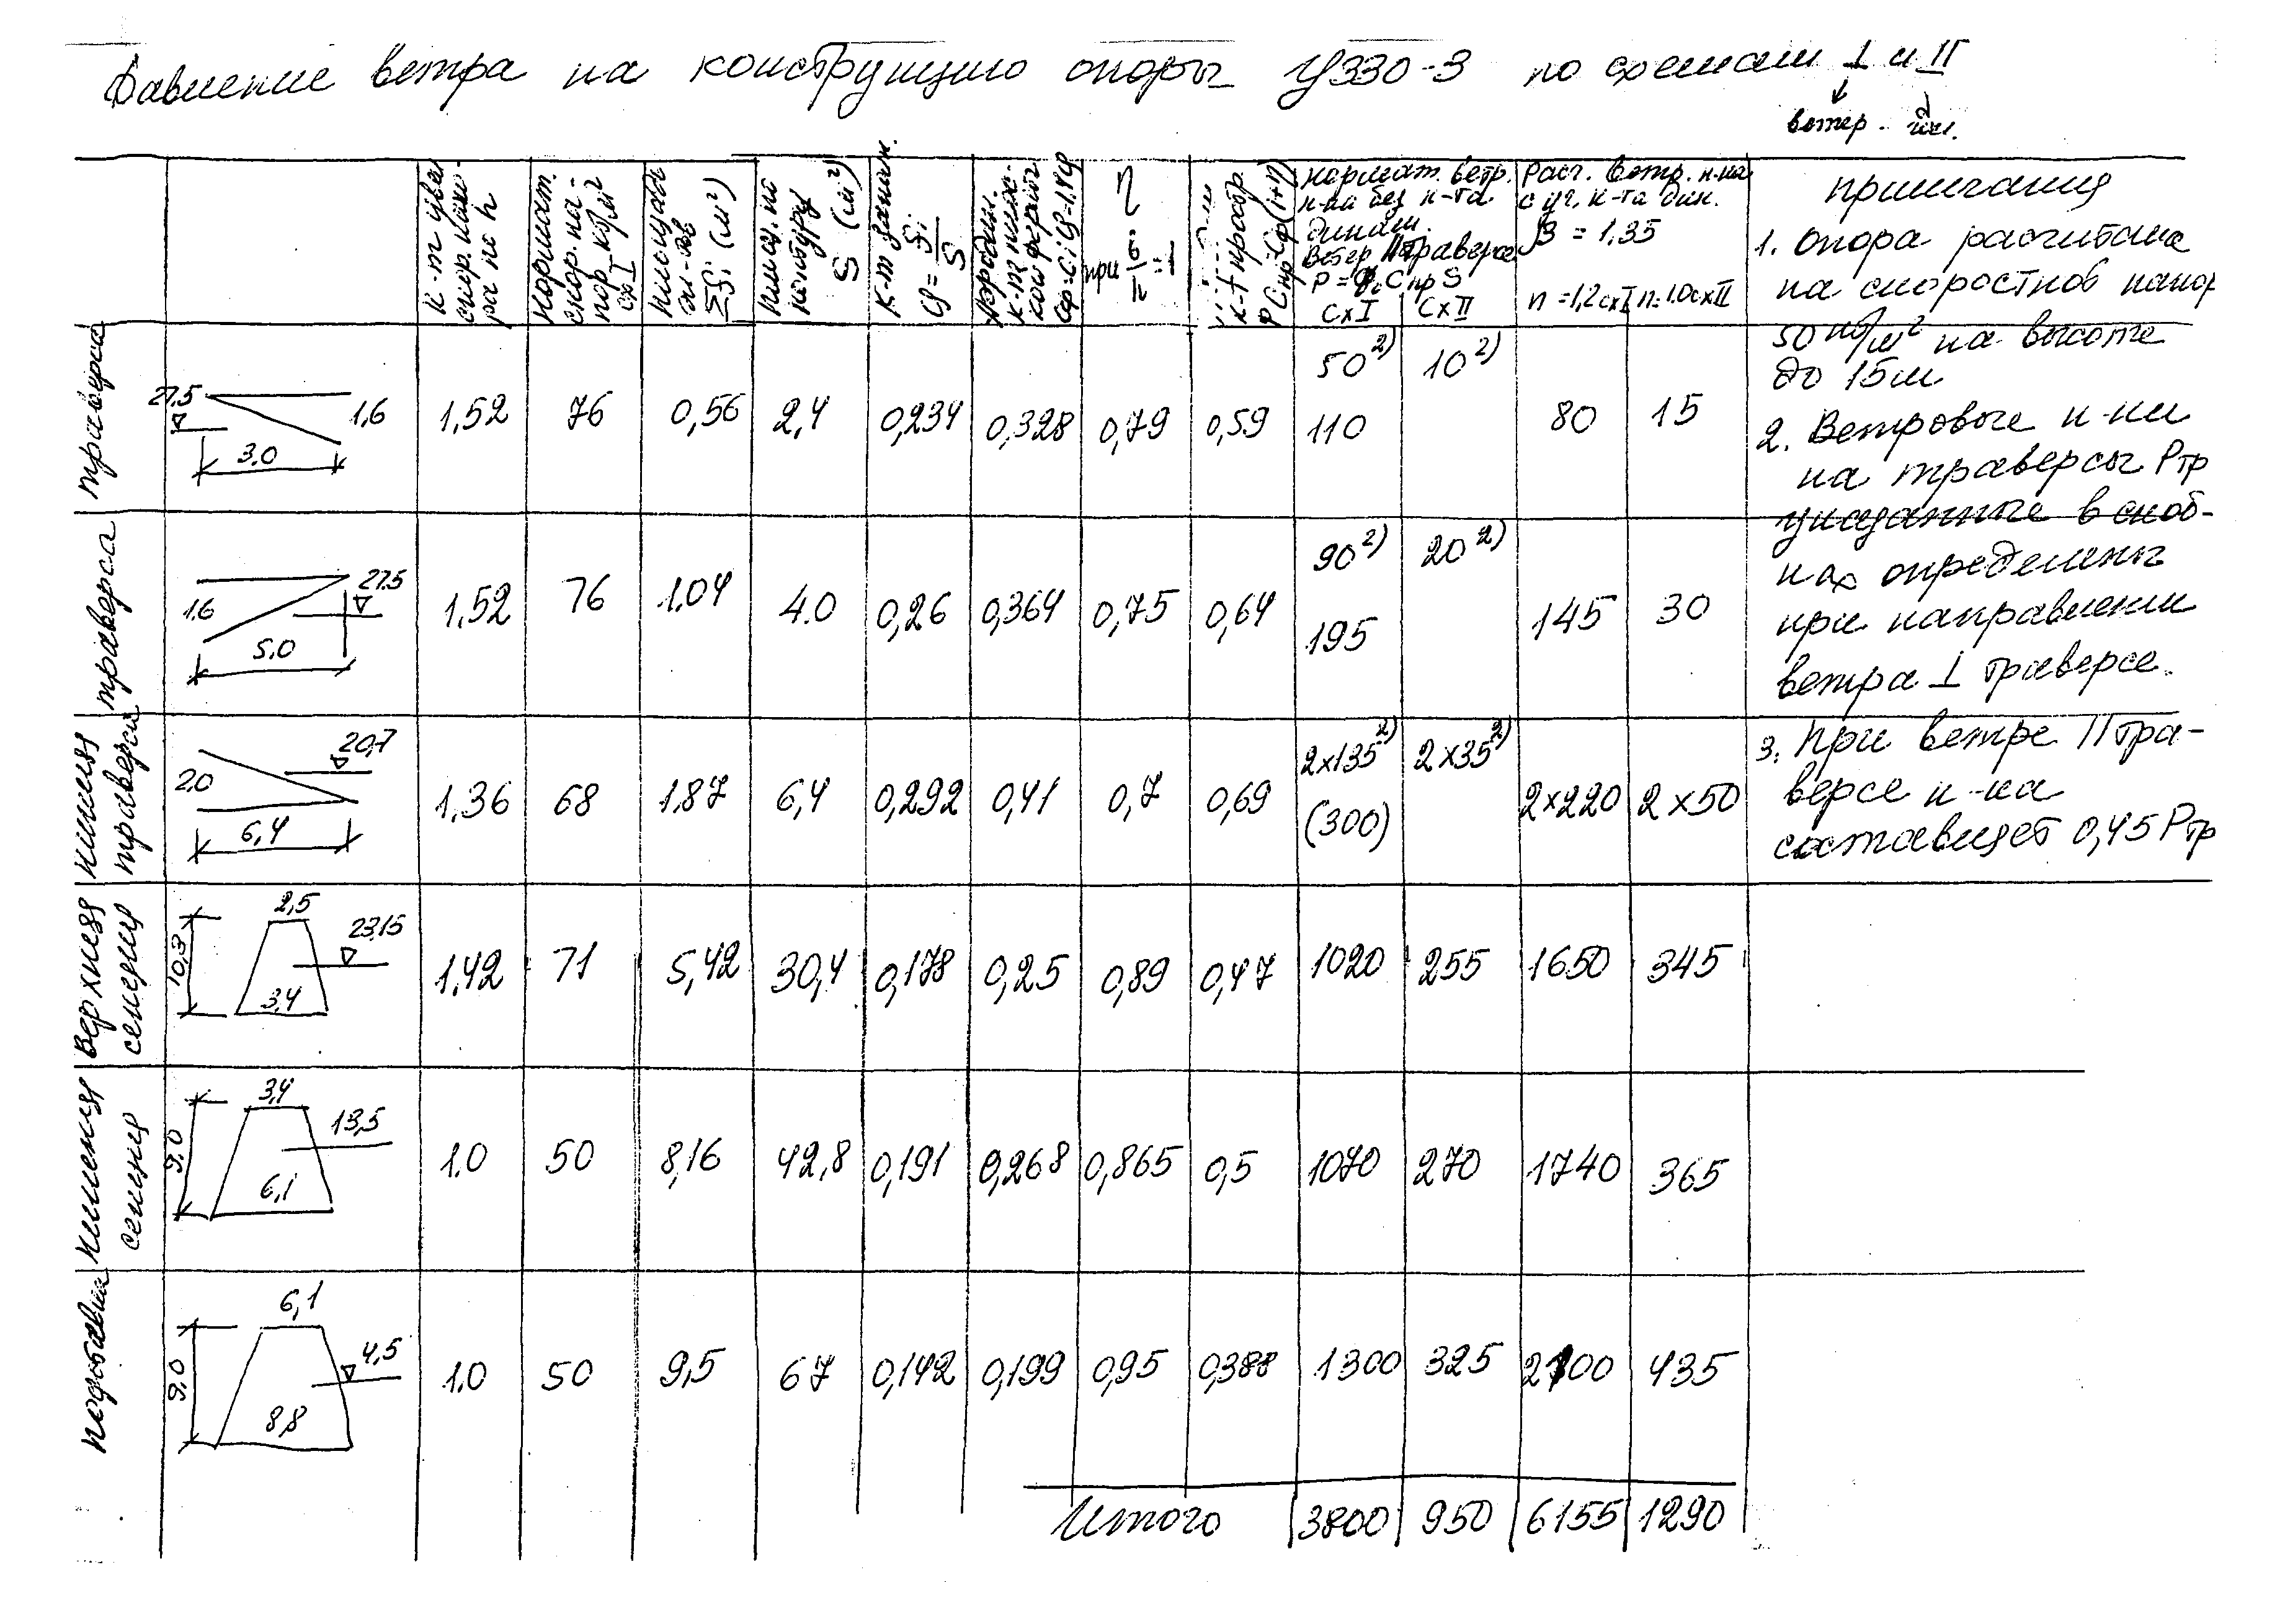 Давление ветра на конструкцию опоры У330-3 по схемам I и II
ветер.
к-т увел. скор. напора по h
Нормат. скор. напор кг/м² сх I
Площадь эл-тов ΣSi (м²)
Площ. по контуру S (м²)
к-т заполн. φ = Si/S
Аэродин. к-т плоской фермы Сф=Ci φ=1,4φ
η при б/h=1
к-т простр. р Спр Сф(1+η)
нормат. ветр. н-ка без к-та динам. ветер ⊥ траверсе P = q₀ Спр S
сх I
сх II
Расч. ветр. н-ка с уч. к-та дин. β = 1,35
n = 1,2 сх I n = 1.0 сх II
примечания
траверса
27.5
1,6
3.0
1,52 76 0,56 2,4 0,234 0,328 0,79 0,59 50²⁾ 110 10²⁾ 80 15
траверса
1.6
27.5
5.0
1,52 76 1.04 4.0 0,26 0,364 0,75 0,64 90²⁾ 195 20²⁾ 145 30
нижняя траверса
2.0
20,7
6,4
1,36 68 1.87 6,4 0,292 0,41 0,7 0,69 2x135²⁾ (300) 2x35²⁾ 2x220 2x50
Верхняя секция
2,5
10,3
23,15
3,4
1,42 71 5,42 30,4 0,178 0,25 0,89 0,47 1020 255 1650 345
нижняя секция
3,4
9.0
13,5
6,1
1.0 50 8,16 42,8 0,191 0,268 0,865 0,5 1070 270 1740 365
подставка
6,1
9.0
4,5
8,8
1.0 50 9,5 67 0,142 0,199 0,95 0,388 1300 325 2100 435
Итого 3800 950 6155 1290
1. Опора расчитана
на скоростной напор
50 кг/м² на высоте
до 15м
2. Ветровые н-ки
на траверсы Ртр
указанные в скоб-
ках определены
при направлении
ветра ⊥ траверсе.
3. При ветре II тра-
версе н-ка
составляет 0,45 Ртр